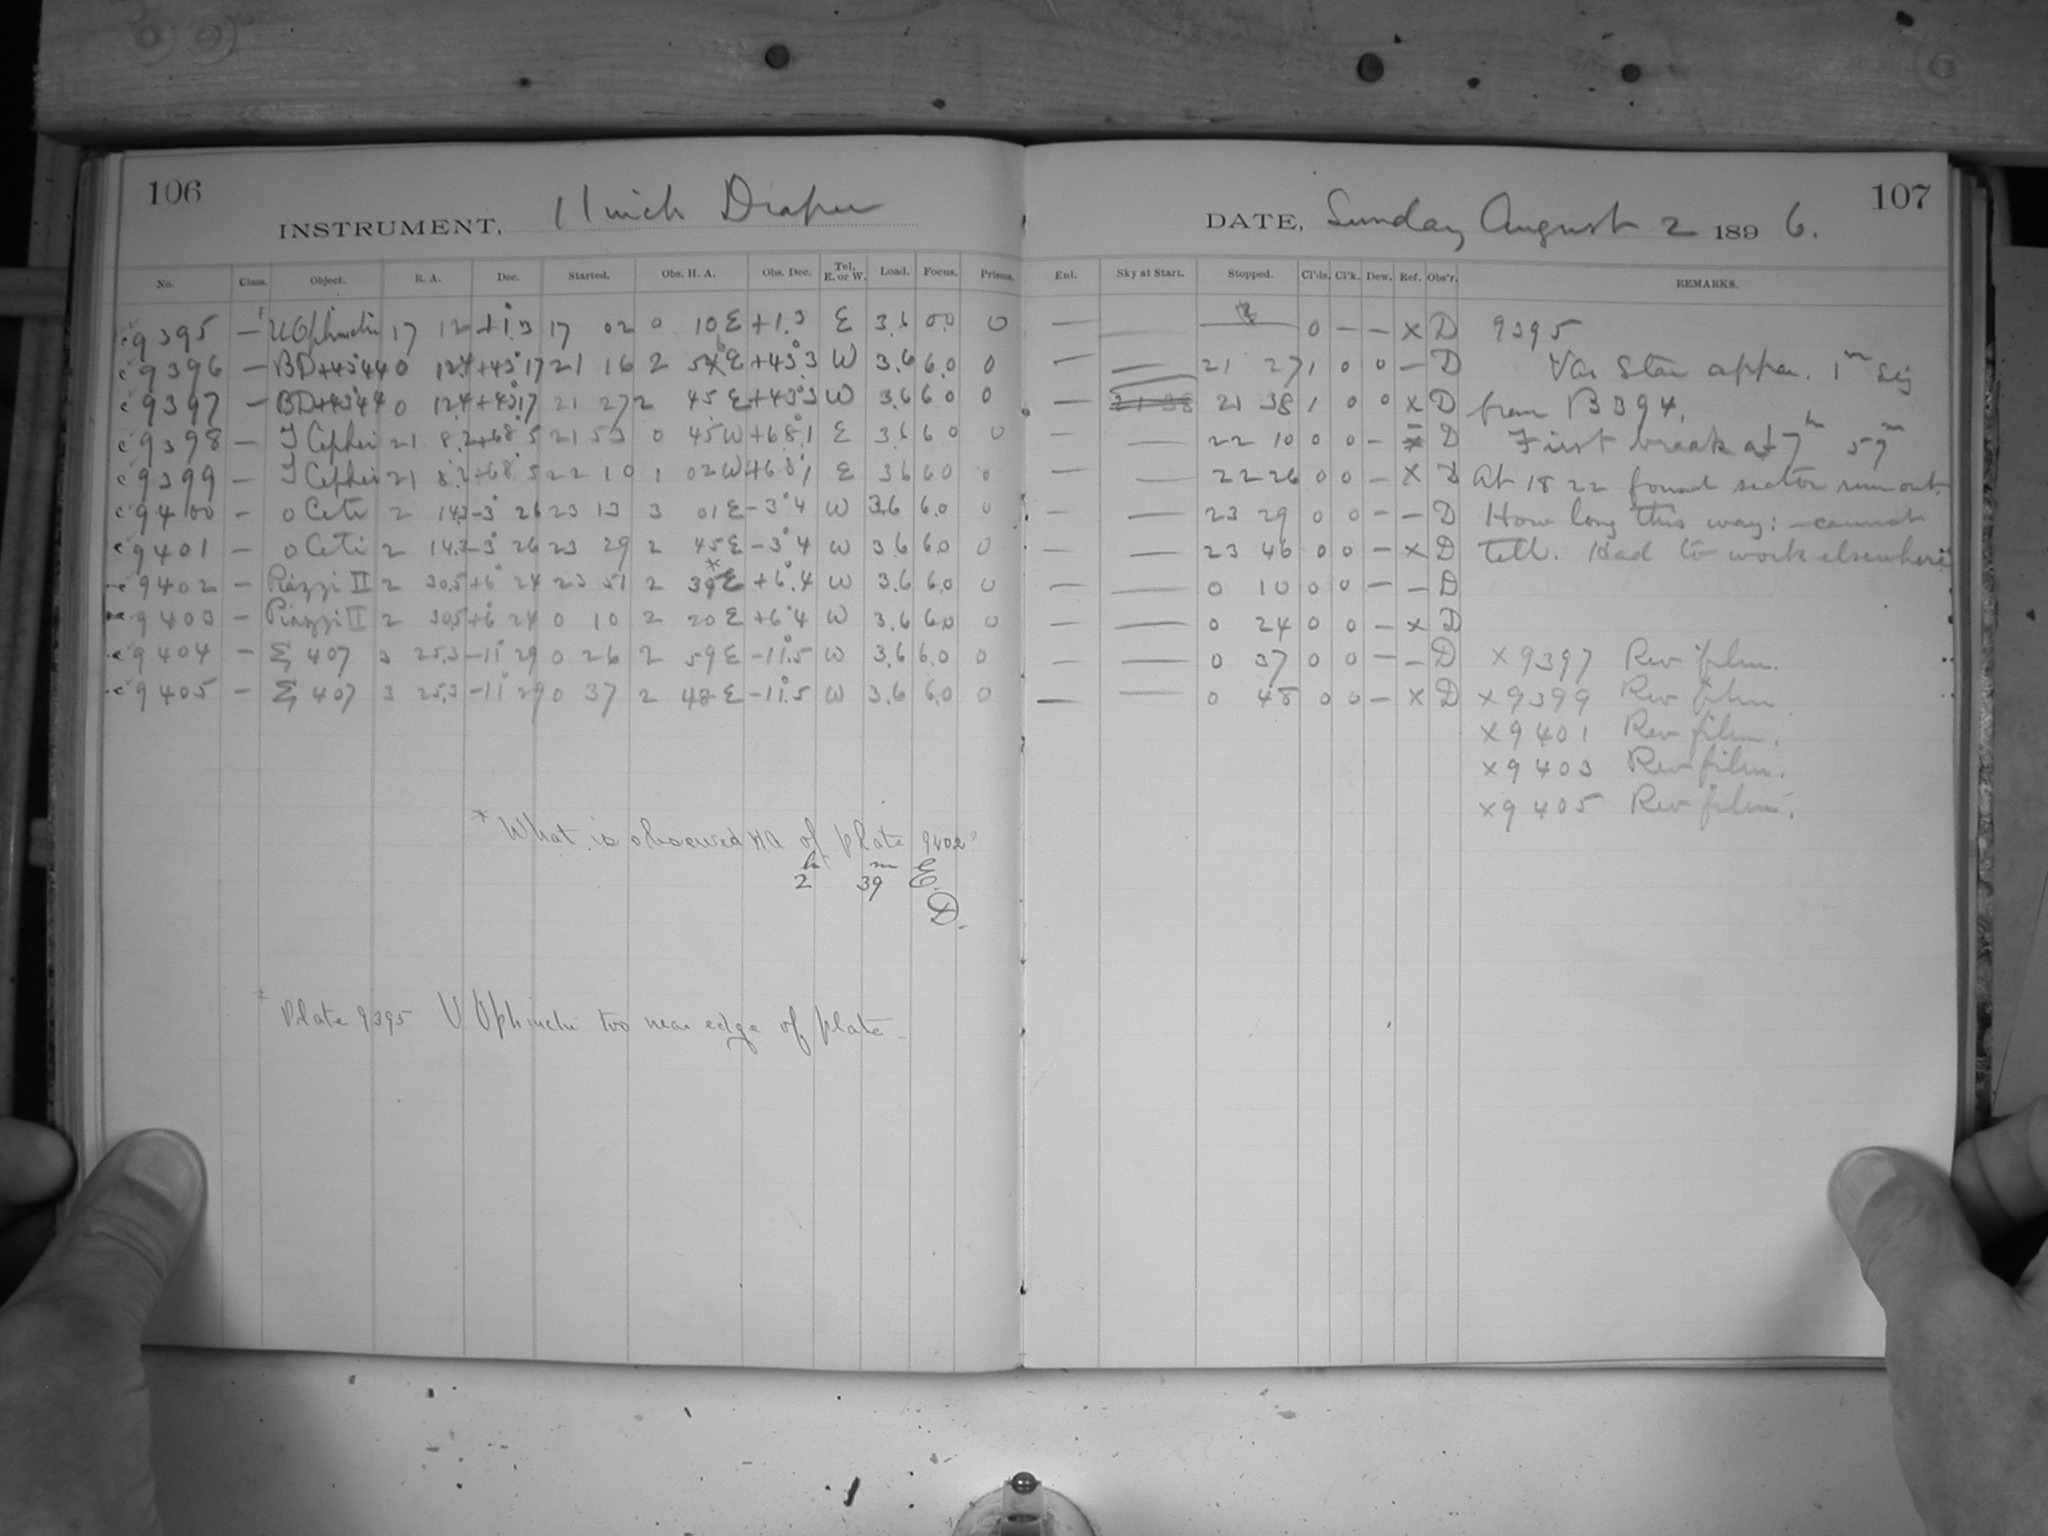 106
INSTRUMENT, 11 inch Draper
No. Class. Object. R. A. Dec. Started. Obs. H. A. Obs. Dec. Tel. E. or W. Load. Focus. Prisms.
c 9395 — U Ophiuchi 17 12 +1.3 17 02 0 10 E +1.3 E 3.6 0
c 9396 — BD+43°44 0 12.4 +43°17 21 16 2 E +43°3 W 3.6 6.0 0
c 9397 — BD+43°44 0 12.4 +43°17 21 27 2 45 E +43°3 W 3.6 6.0 0
c 9398 — T Cephei 21 8.2 +68°5 21 53 0 45 W +68°1 E 3.6 6.0 0
c 9399 — T Cephei 21 8.2 +68°5 22 10 1 02 W +68°1 E 3.6 6.0 0
c 9400 — o Ceti 2 14.3 -3° 26 23 13 3 01 E -3°4 W 3.6 6.0 0
c 9401 — o Ceti 2 14.3 -3° 26 23 29 2 45 E -3°4 W 3.6 6.0 0
c 9402 — Piazzi II 2 30.5 +6° 24 23 51 2 39* E +6°.4 W 3.6 6.0 0
c 9403 — Piazzi II 2 30.5 +6° 24 0 10 2 20 E +6°4 W 3.6 6.0 0
c 9404 — Σ 407 3 25.3 -11° 29 0 26 2 59 E -11°.5 W 3.6 6.0 0
c 9405 — Σ 407 3 25.3 -11° 29 0 37 2 48 E -11°.5 W 3.6 6.0 0
* What is observed HA of plate 9402?
2h 39m E.
D.
* Plate 9395 U Ophiuchi too near edge of plate
107
DATE, Sunday August 2 1896.
Enl. Sky at Start. Stopped. Cl'ds. Cl'k. Dew. Ref. Obs'r. REMARKS.
— — — 0 — — x D 9395
— — 21 27 1 0 0 — D Var Star appar. 1m
— 21 38 1 0 0 x D from B 394.
— — 22 10 0 0 — D First break at 7h 57m
— — 22 26 0 0 — x D At 18 22 found sector run out.
— — 23 29 0 0 — — D How long this way: — cannot
— — 23 46 0 0 — x D tell. Had to work elsewhere
— — 0 10 0 0 — — D
— — 0 24 0 0 — x D
— — 0 37 0 0 — — D x 9397 Rev film.
— — 0 48 0 0 — x D x 9399 Rev film
x 9401 Rev film.
x 9403 Rev film.
x 9405 Rev film.